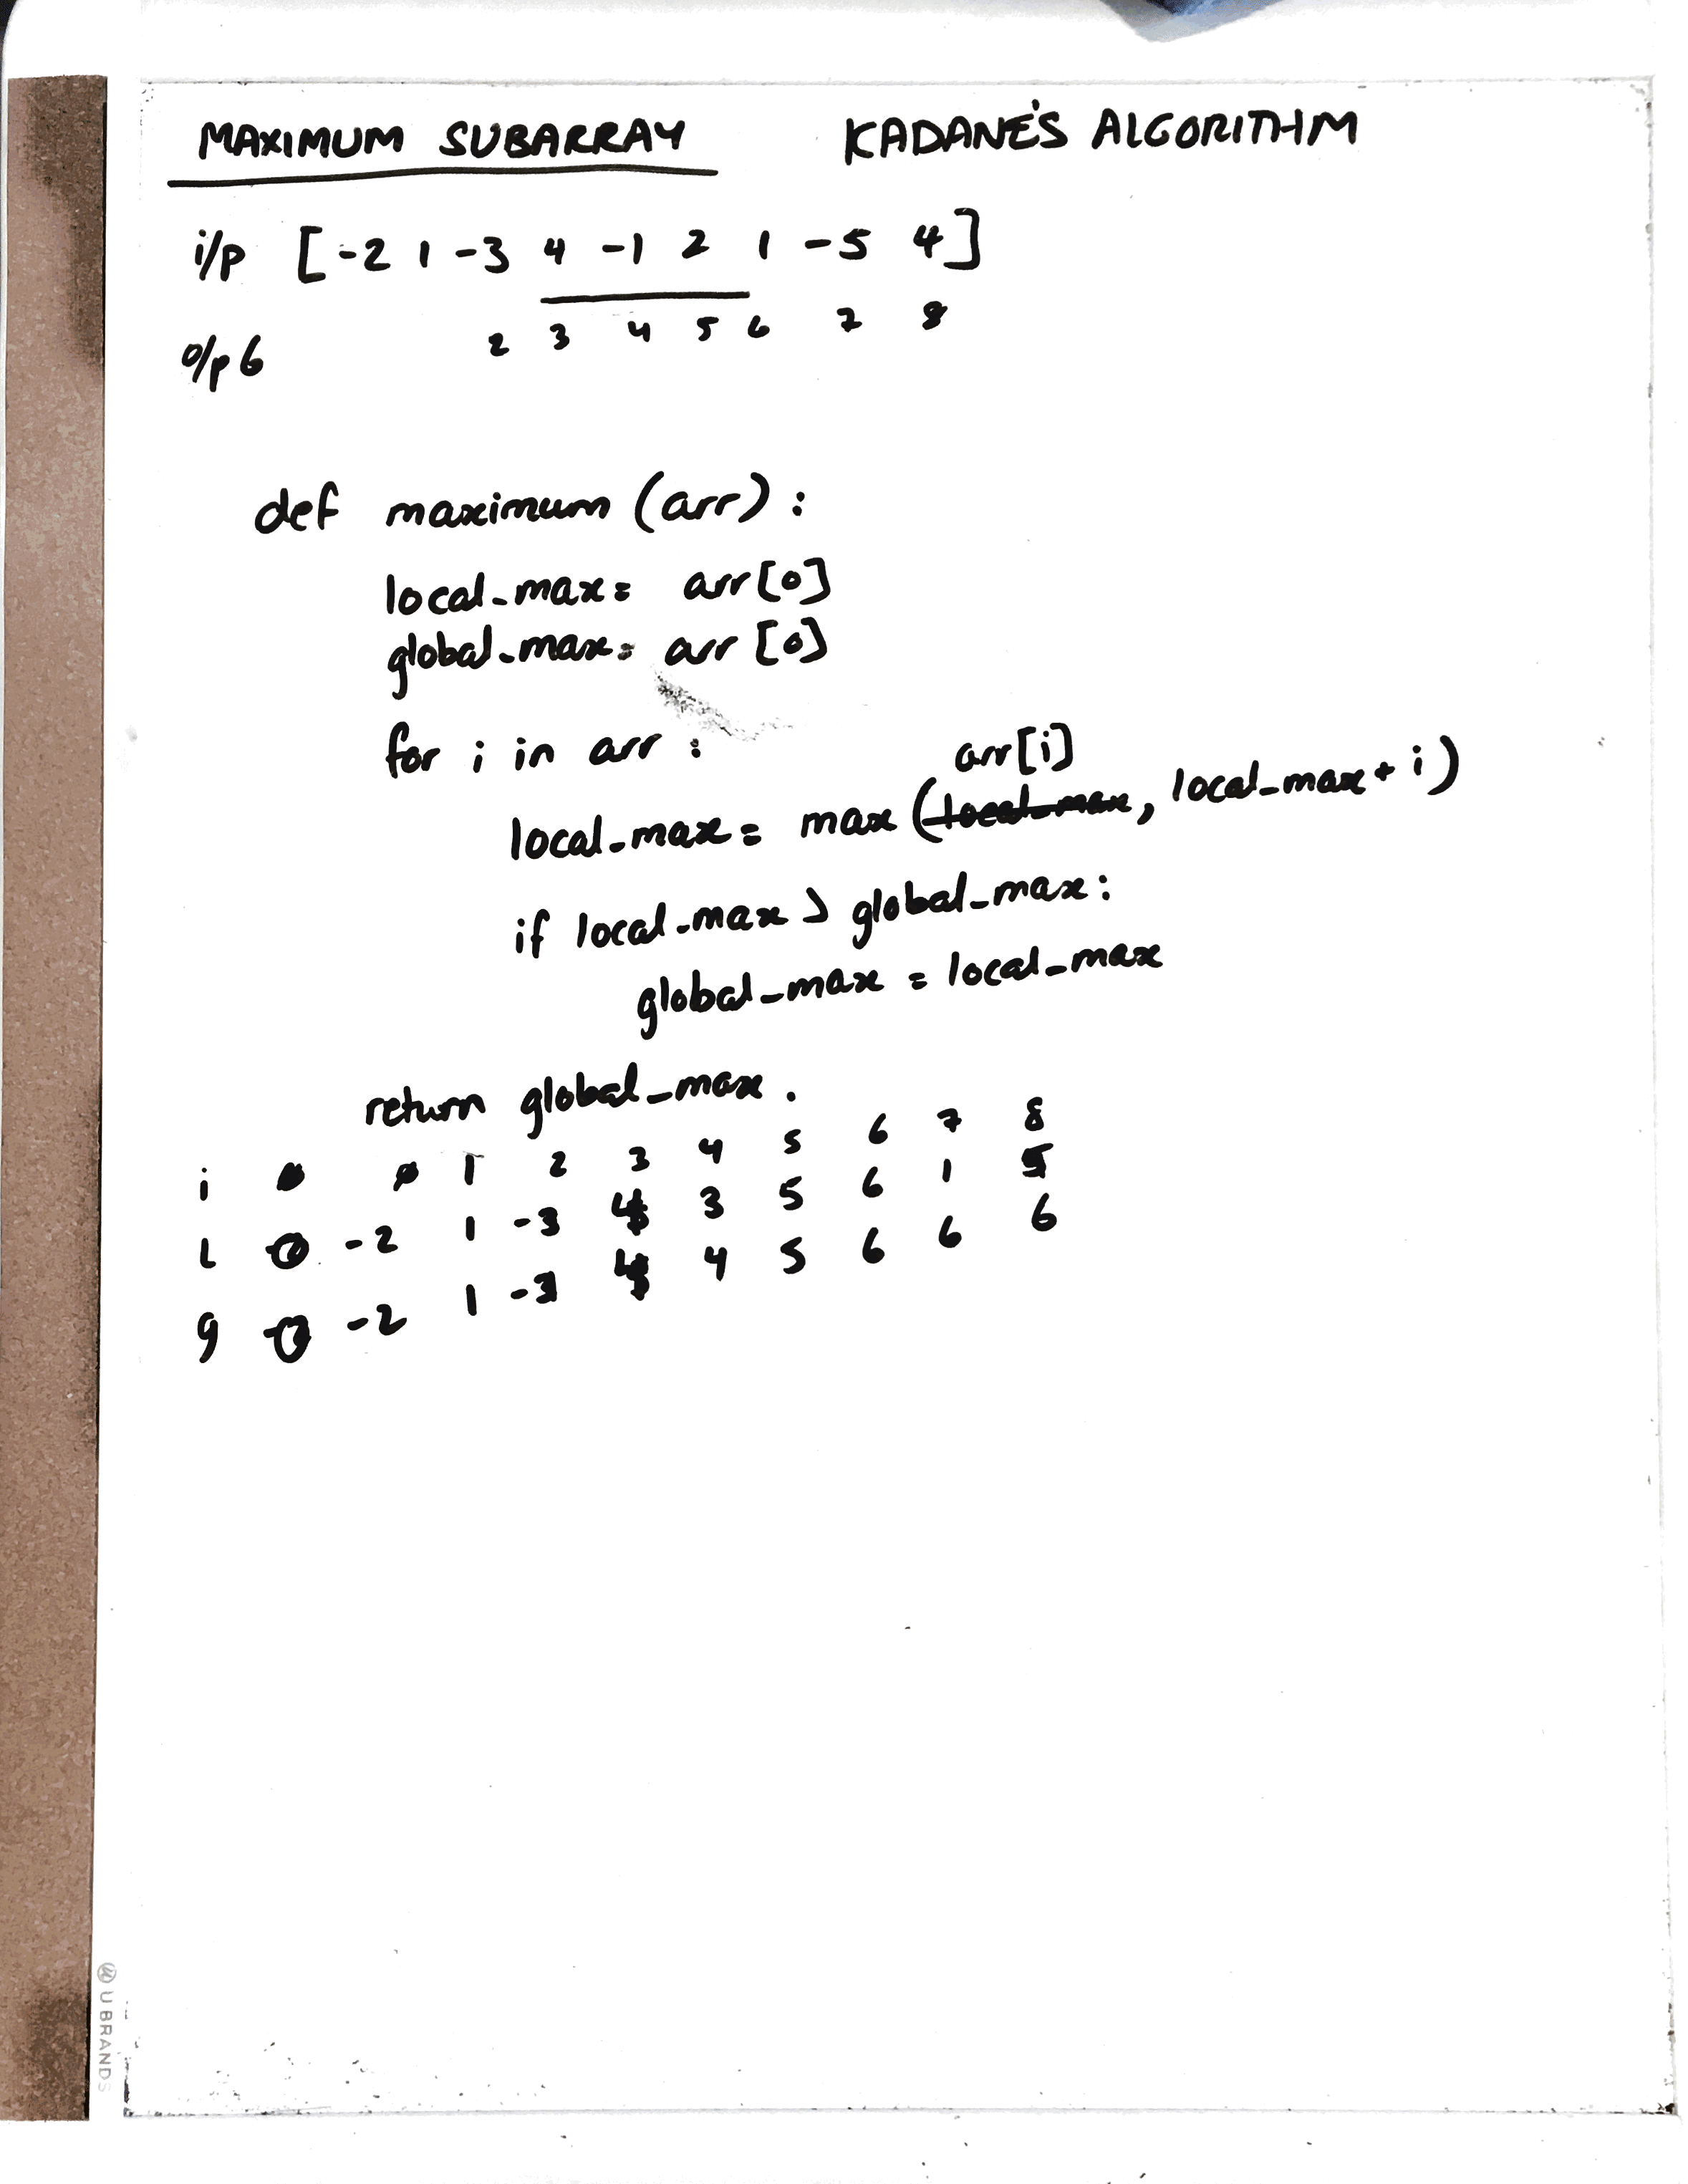 MAXIMUM SUBARRAY KADANE'S ALGORITHM
i/p [-2 1 -3 4 -1 2 1 -5 4]
2 3 4 5 6 7 8
o/p 6
def maximum (arr) :
local_max = arr[0]
global_max = arr [0]
for i in arr :
arr[i]
local_max = max (local_max, local_max + i)
if local_max > global_max :
global_max = local_max
return global_max .
i 0 1 2 3 4 5 6 7 8
L -2 1 -3 4 3 5 6 1 5
g -2 1 -3 4 4 5 6 6 6
U BRANDS